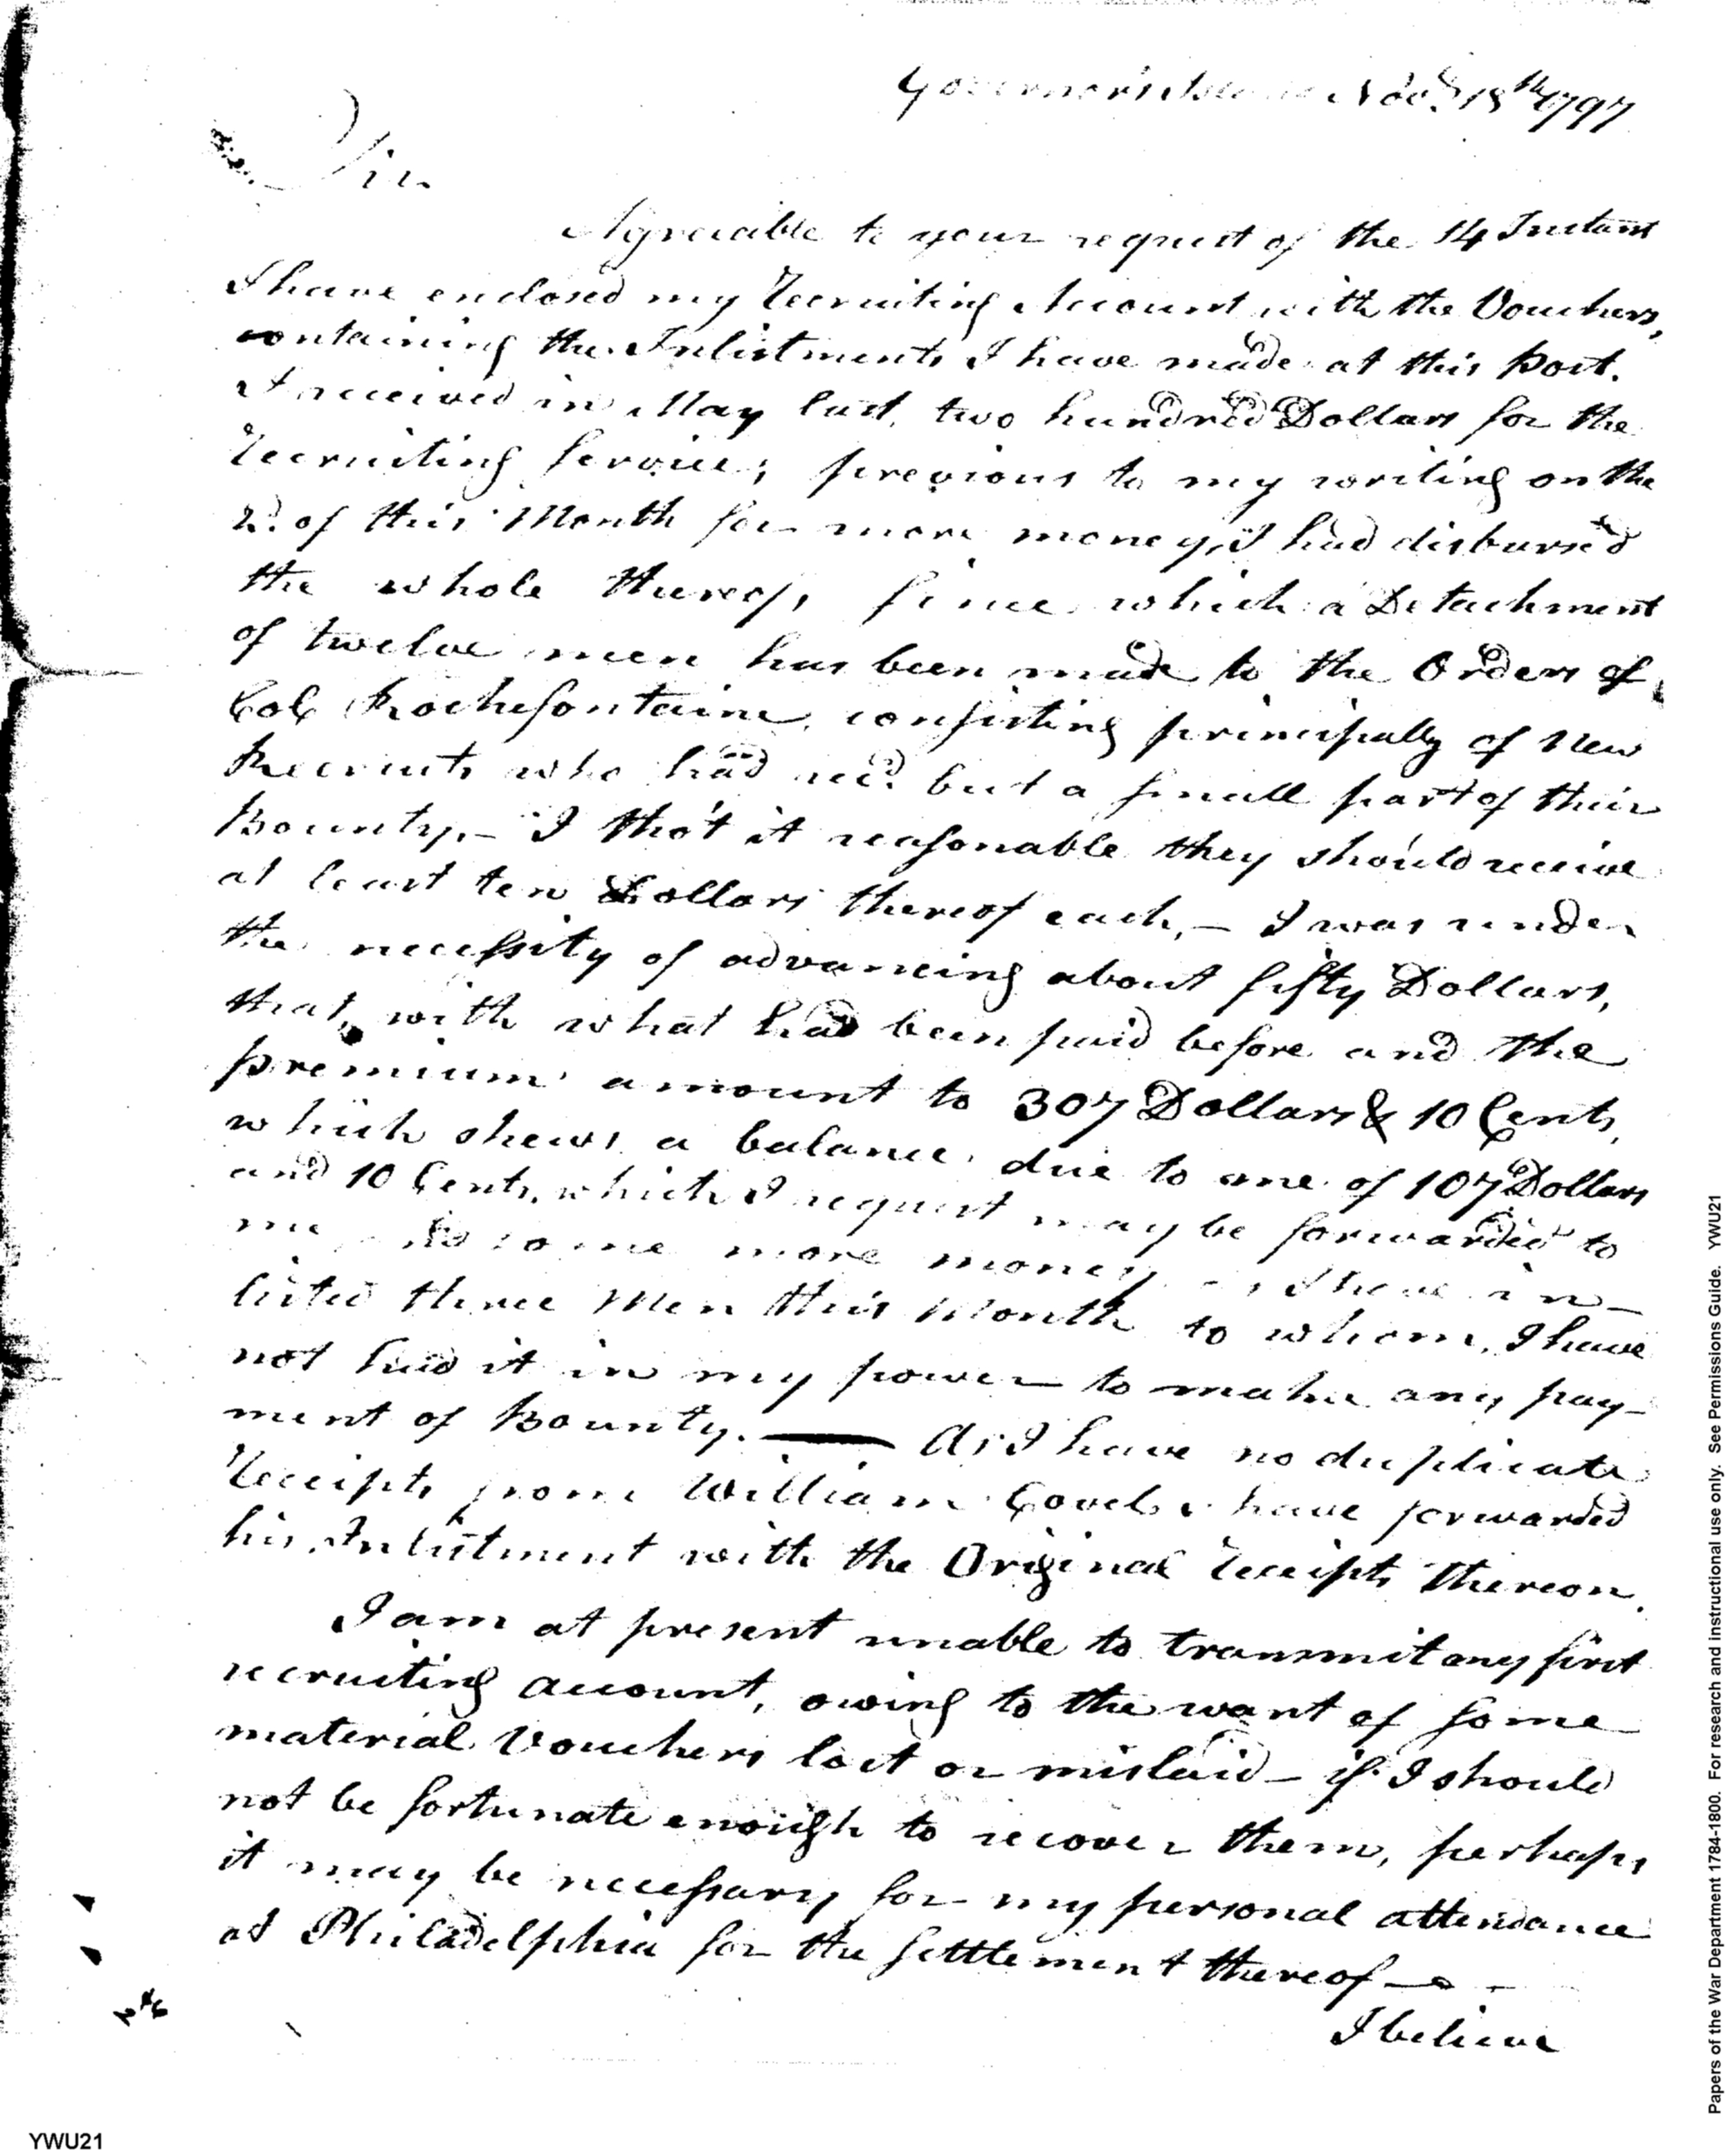 Governor's Island Novr. 18th 1797
Sir.
Agreeable to your request of the 14 Instant
I have enclosed my Recruiting Account with the Vouchers,
containing the Inlistments I have made at this Post.
I received in May last, two hundred Dollars for the
Recruiting Service; previous to my writing on the
2d. of this Month for more money, I had disbursed
the whole thereof, since which a Detachment
of twelve men has been made to the Orders of
Col Rochefontaine, consisting principally of New
Recruits who had recd. but a small part of their
Bounty,- I tho't it reasonable they should receive
at least ten Dollars thereof each,- I was under
the necessity of advancing about fifty Dollars,
that, with what had been paid before and the
premium amount to 307 Dollars & 10 Cents,
which shews a balance due to me of 107 Dollars
and 10 Cents, which I request may be forwarded to
me some more money as I have in-
listed three Men this Month to whom, I have
not had it in my power to make any pay-
ment of Bounty. — As I have no duplicate
Receipts from William have forwarded
his Inlistment with the Original Receipts thereon.
I am at present unable to transmit my first
recruiting account, owing to the want of some
material Vouchers lost or mislaid - if I should
not be fortunate enough to recover them, perhaps
it may be necessary for my personal attendance
at Philadelphia for the settlement thereof —
I believe
YWU21
Papers of the War Department 1784-1800. For research and instructional use only. See Permissions Guide. YWU21